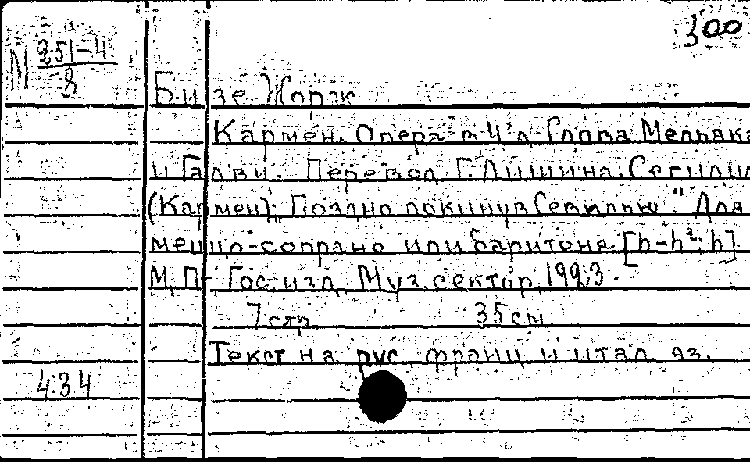 300
М 251-4
8
Бизе Жорж
Кармен. Опера в 4 д. Слова Мельяка
и Галви. Перевод Г. Лишина. Сегидил
(Кармен): "Поздно покинув Севилью." Для
меццо-сопрано или баритона. [h-h²; h]
М. П. Гос. изд. Муз. сектор, 1923.
7 стр. 35 cm
Текст на рус. франц и итал яз.
434